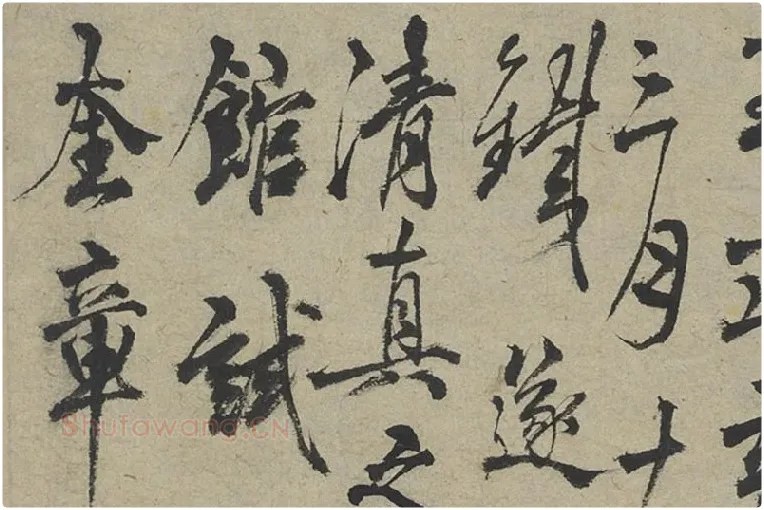 三月十
鐵篴
清真之
館試
奎章
Shufawang.CN